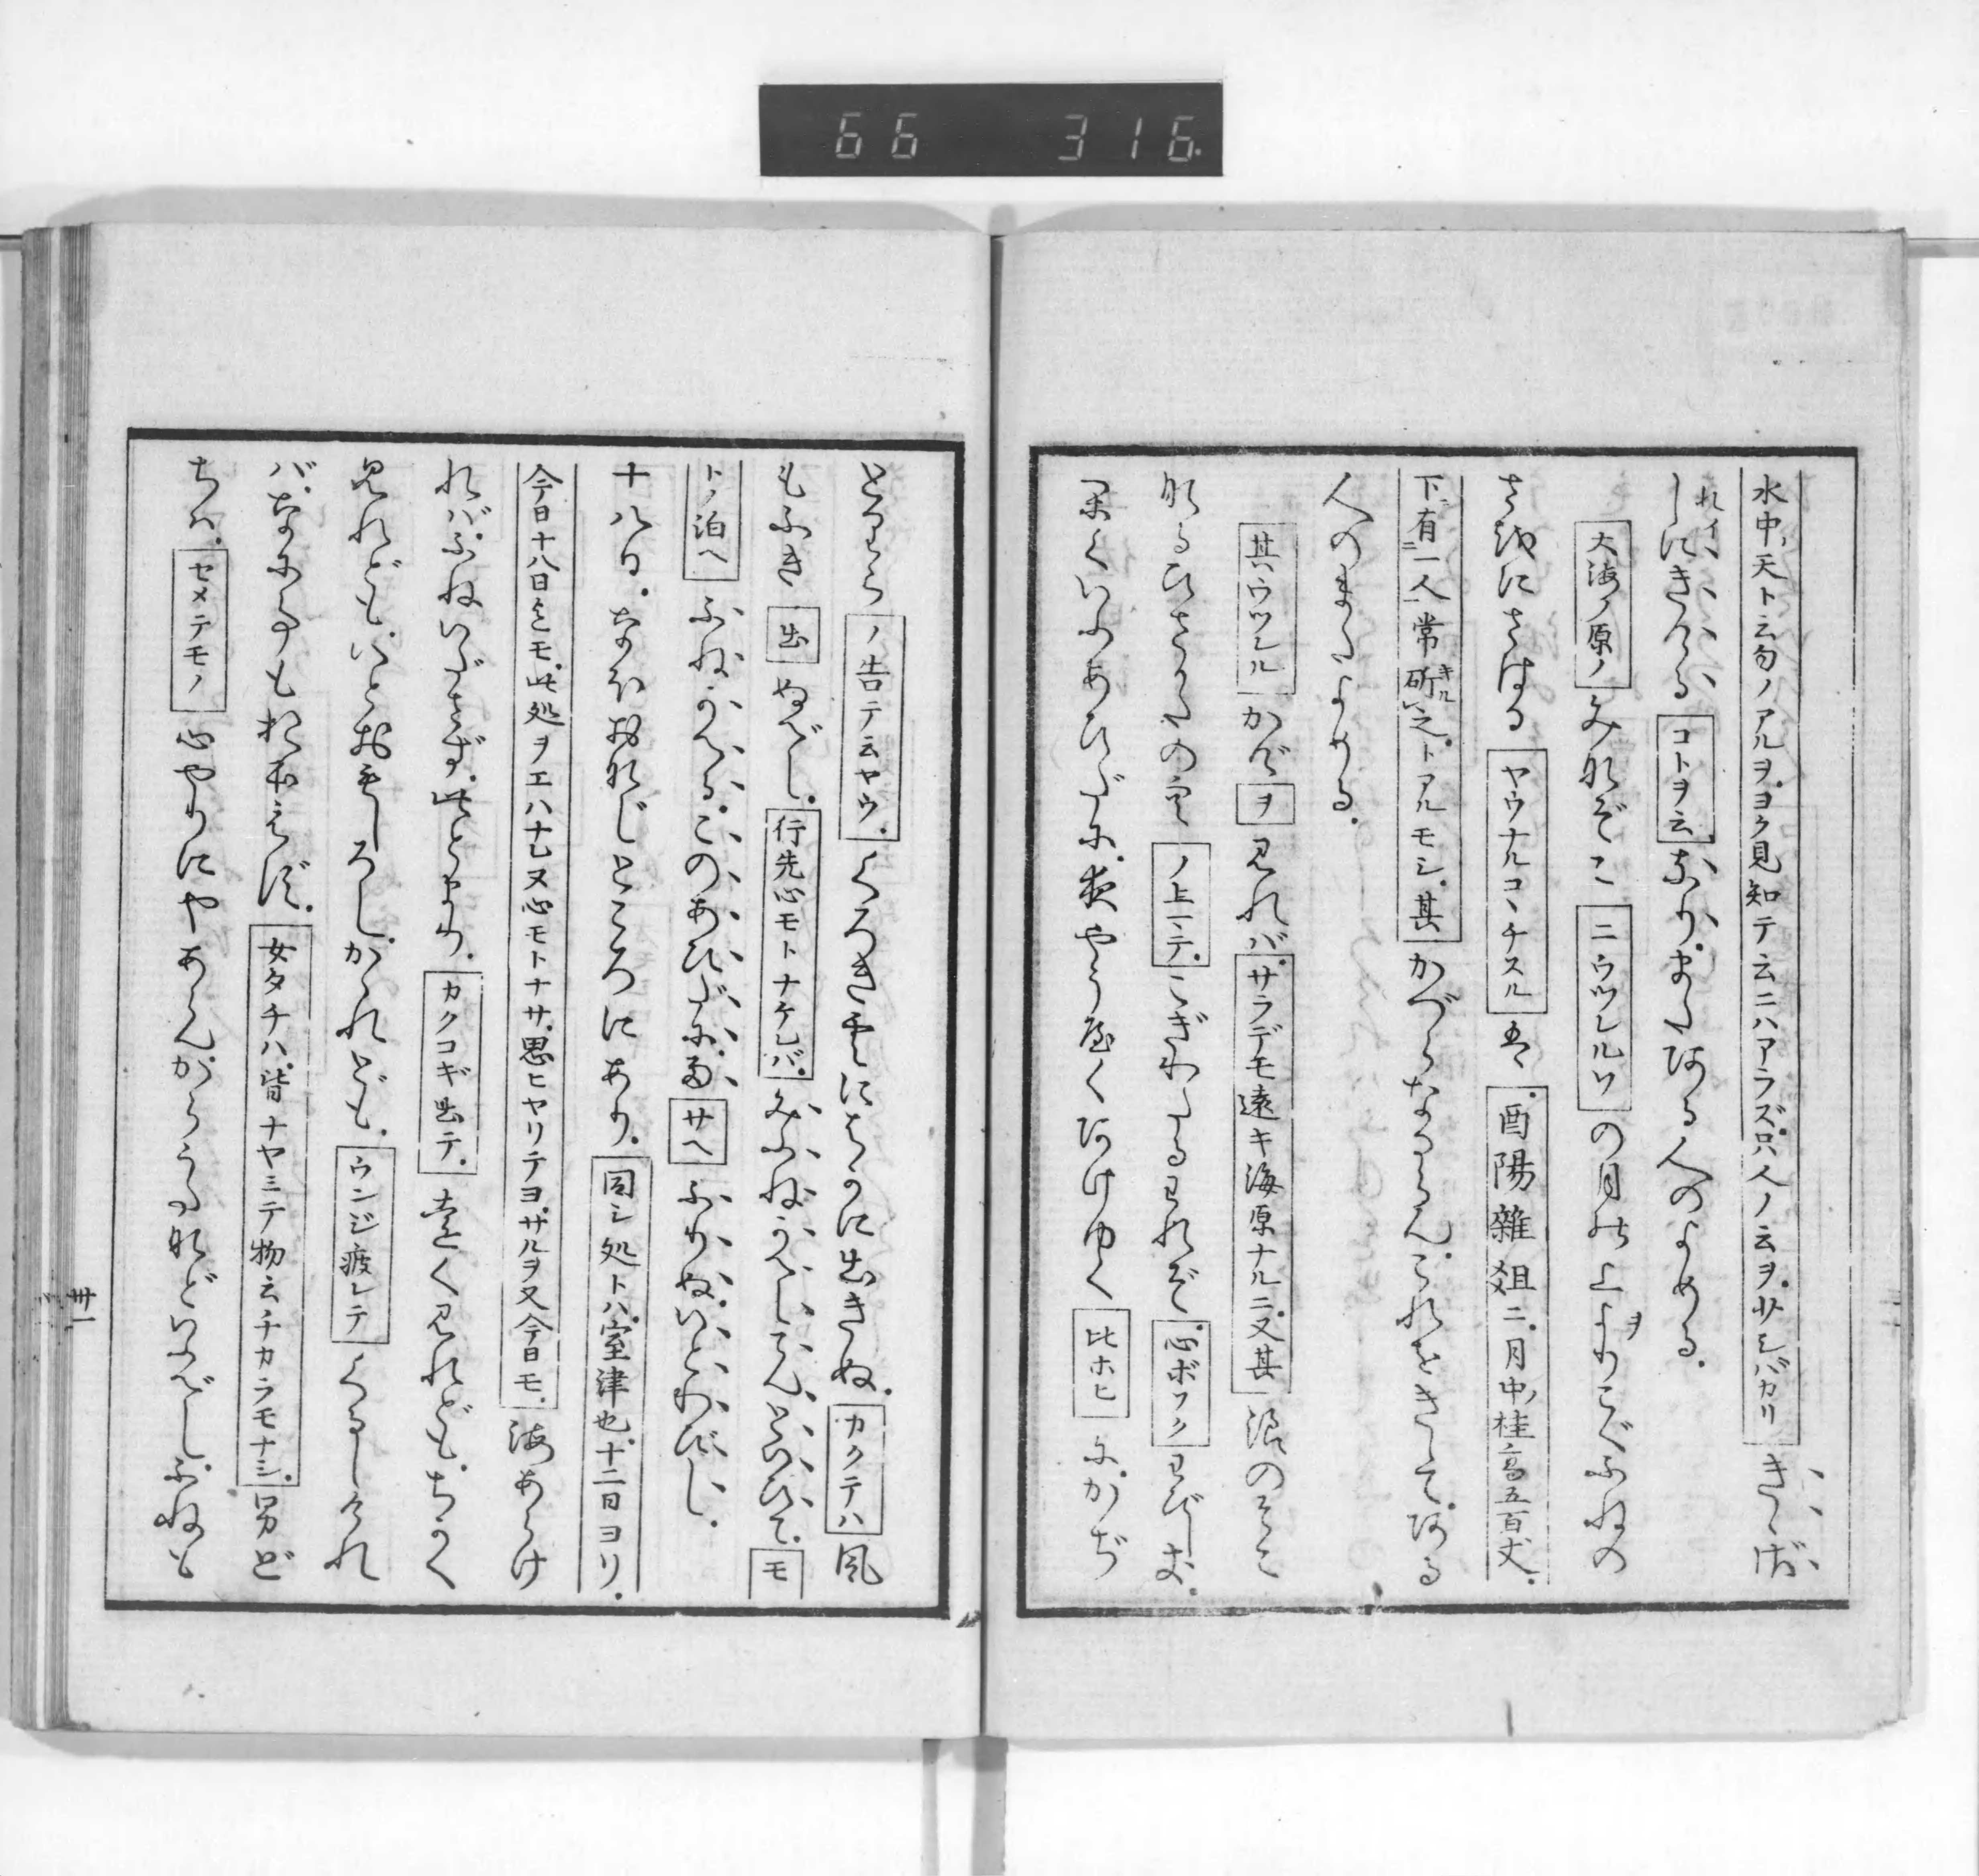 66 316
水中ノ天ト云句ノアルヲ。ヨク見知テ云ニハアラズ。只人ノ云ヲ。サレバカリきゝざ
れイ
しにきける コトヲ云。なり。またある人のよめる。
大海ノ原ノ みなぞこ ニウツレルソ の月の上よりこぐふねの
ヲ
さをにさはる ヤウナルコヽチスル は 。酉陽雑爼ニ。月中ノ桂高五百丈。
下ニ有一人常斫キル之。トアルモシ。其 かつらなるらん。これをきゝて。ある
人のまたよめる。
其ウツレル かげ ヲ 見れバ。サラデモ遠キ海原ナルニ。又其 浪のそこ
なるひさかたの空 ノ上ニテ。 こぎわたるわれぞ 。心ボソク わびしき。
かくいふあひだに。夜やうやくあけゆく 比ホヒ に。かぢ
とりら ノ告テ云ヤウ。 くろき雲にはかに出きぬ。カクテハ 風
もふき 出 ぬべし。行先心モトナケレバ。 みふねかへしてん。といひて。モ
トノ泊ヘ ふねかへる。このあひだに雨 サヘ ふりぬ。いとわびし。
十八日。なほおなじところにあり。同シ処ト八。室津也。十二日ヨリ。
今日十八日迄モ。此処ヲエハナレズ心モトナサ。思ヒヤリテヨ。サルヲ又今日モ。海あらけ
れバ。ふねいださず。此とまり。カクコギ出テ。遠く見れども。ちかく
見れども。いとおもしろし。かゝれども。ウンジ疲レテ くるしければ
バ。なにごともおぼえず。女タチハ。皆ナヤミテ物云チカラモナシ。男ど
ちハ。セメテモノ 心やりにやあらん。からうたなどいふべし。ふねも
卅一